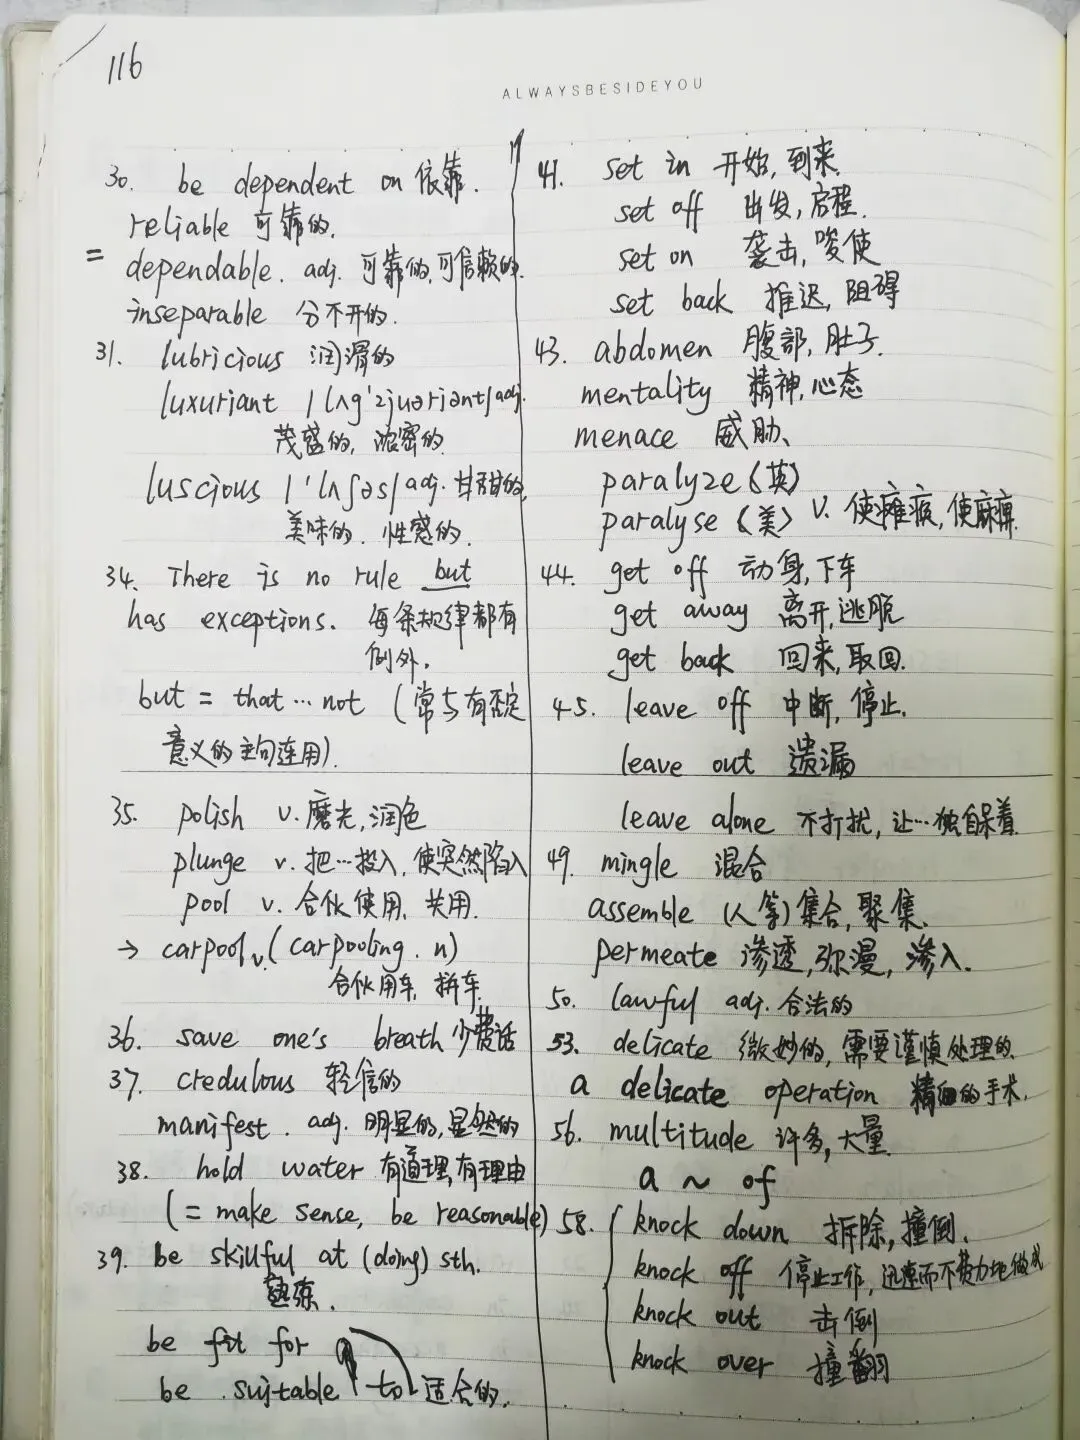 116
ALWAYSBESIDEYOU
30. be dependent on 依靠.
reliable 可靠的.
= dependable. adj. 可靠的,可信赖的.
inseparable 分不开的.
31. lubricious 润滑的
luxuriant /lʌg'ʒjuəriənt/adj.
茂盛的, 浓密的
luscious /'lʌʃəs/adj. 甘甜的,
美味的. 性感的.
34. There is no rule but
has exceptions. 每条规律都有
例外.
but = that…not (常与有否定
意义的主句连用).
35. polish v. 磨光,润色
plunge v. 把…投入, 使突然陷入
pool v. 合伙使用, 共用.
→ carpool v. (carpooling. n)
合伙用车, 拼车.
36. save one's breath 少费话
37. credulous 轻信的
manifest. adj. 明显的,显然的
38. hold water 有道理,有理由
(= make sense, be reasonable)
39. be skillful at (doing) sth.
熟练.
be fit for
be suitable to 适合的.
41. set in 开始,到来.
set off 出发,启程.
set on 袭击,唆使
set back 推迟,阻碍
43. abdomen 腹部,肚子.
mentality 精神,心态
menace 威胁、
paralyze (英)
paralyse 〈美〉 v. 使瘫痪,使麻痹.
44. get off 动身,下车
get away 离开,逃脱
get back 回来,取回.
45. leave off 中断,停止.
leave out 遗漏
leave alone 不打扰, 让…独自呆着.
49. mingle 混合
assemble (人等)集合,聚集.
permeate 渗透,弥漫,渗入.
50. lawful adj. 合法的
53. delicate 微妙的,需要谨慎处理的.
a delicate operation 精细的手术.
56. multitude 许多,大量.
a ~ of
58. knock down 拆除,撞倒.
knock off 停止工作,迅速而不费力地做成
knock out 击倒
knock over 撞翻